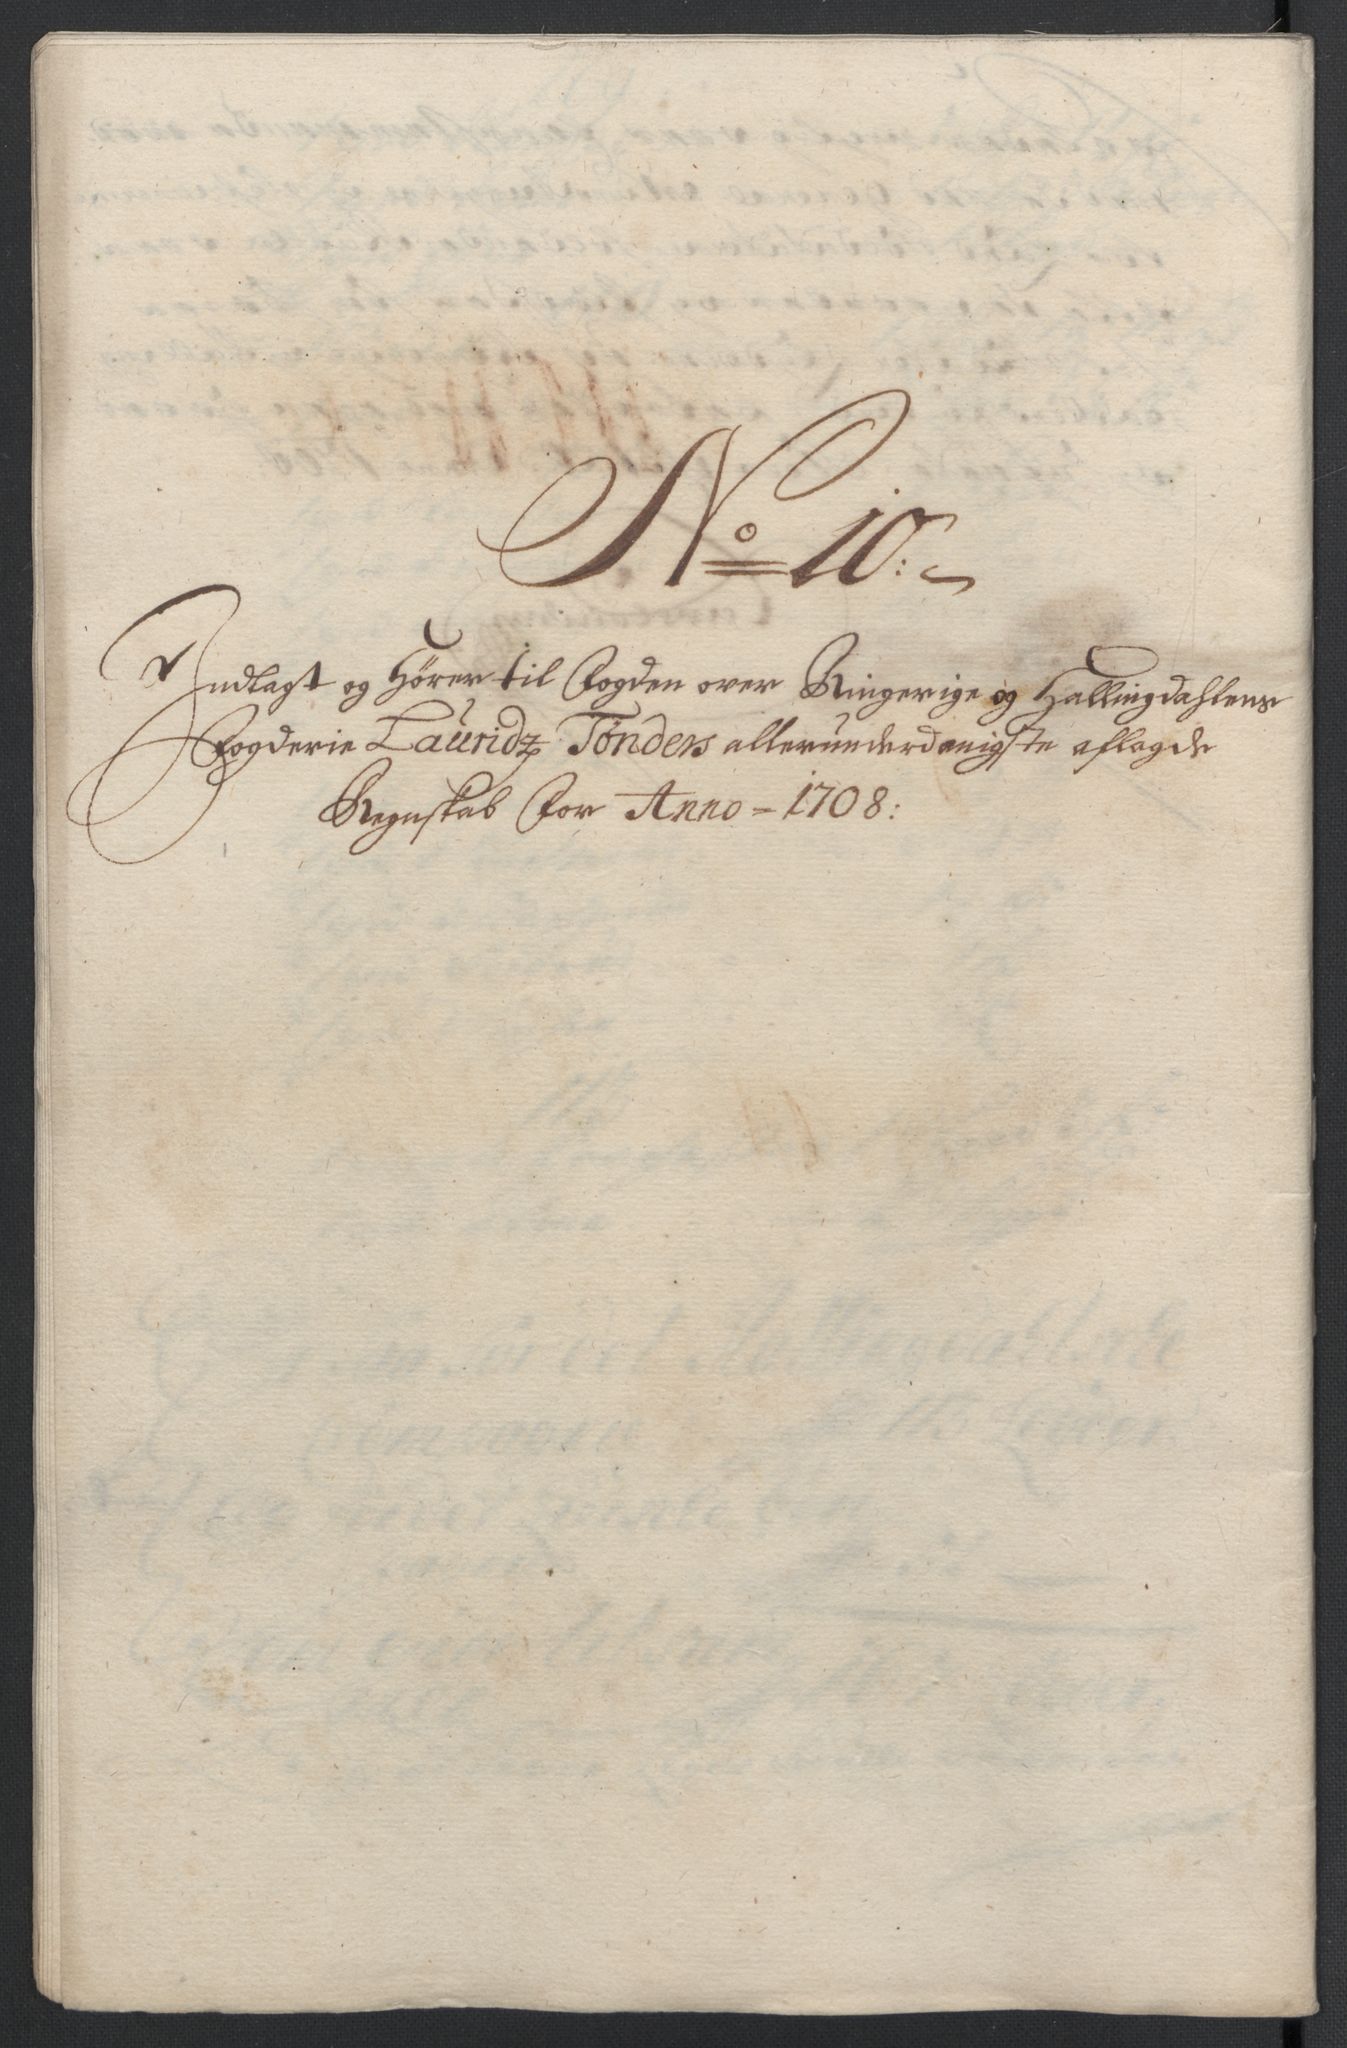 No 10:
Indlagt og Hører til Fogden over Ringerige og Hallingdahlens
Fogderie Lauridtz Tønders allerunderdanigste aflagde
Regnskab For Anno - 1708: